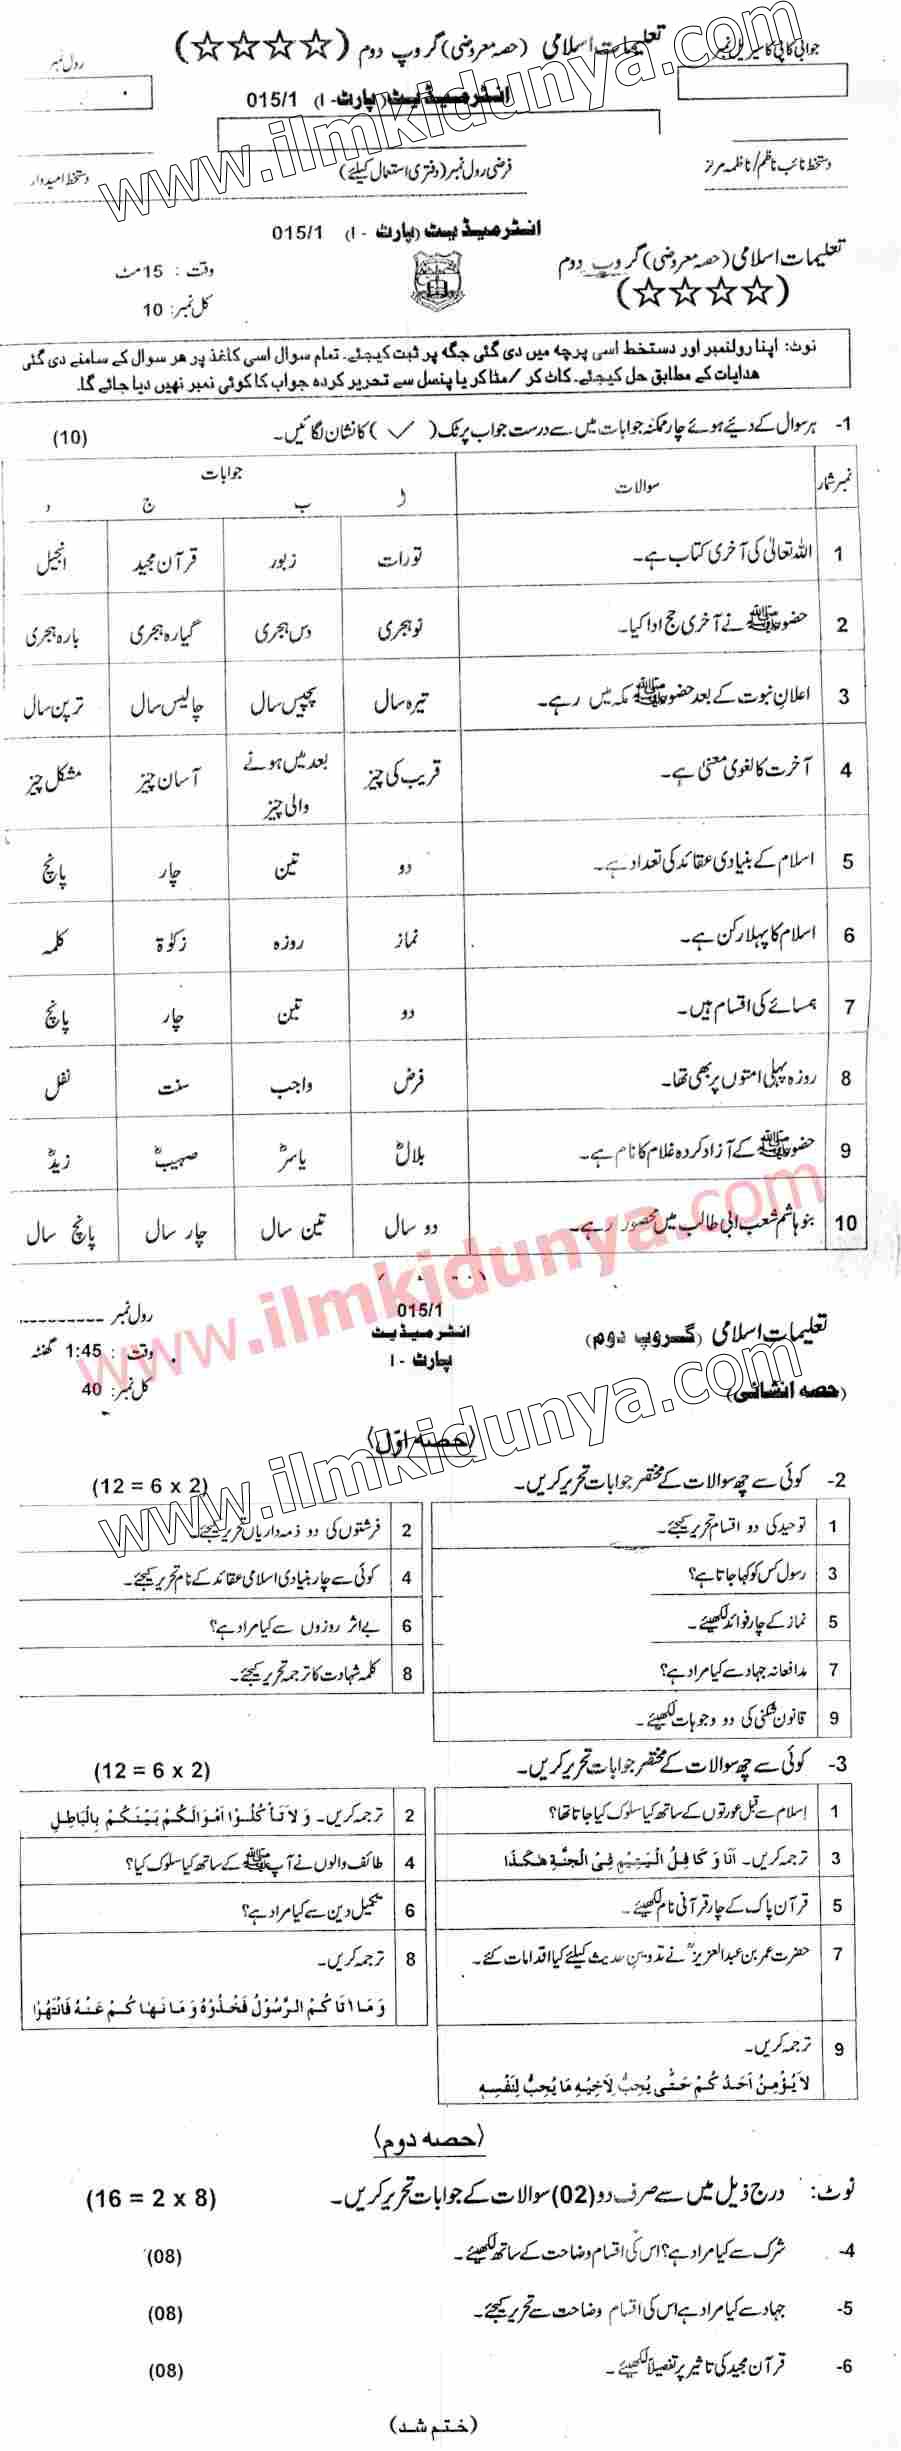 جوابی کاپی کا سیریل نمبر
تعلیمات اسلامی (حصہ معروضی) گروپ دوم (☆☆☆☆)
رول نمبر
انٹرمیڈیٹ (پارٹ - I) 015/1
دستخط نائب ناظم/ناظمہ مرکز
فرضی رول نمبر (دفتری استعمال کیلئے)
دستخط امیدوار
www.ilmkidunya.com
انٹرمیڈیٹ (پارٹ - I) 015/1
تعلیمات اسلامی (حصہ معروضی) گروپ دوم
(☆☆☆☆)
وقت : 15 منٹ
کل نمبر: 10
نوٹ: اپنا رولنمبر اور دستخط اسی پرچہ میں دی گئی جگہ پر ثبت کیجئے۔ تمام سوال اسی کاغذ پر ہر سوال کے سامنے دی گئی
ہدایات کے مطابق حل کیجئے۔ کاٹ کر /مٹا کر یا پنسل سے تحریر کردہ جواب کا کوئی نمبر نہیں دیا جائے گا۔
1- ہر سوال کے دیئے ہوئے چار ممکنہ جوابات میں سے درست جواب پر ٹک (✓) کا نشان لگائیں۔ (10)
نمبر شمار سوالات جوابات
ا ب ج د
1 اللہ تعالیٰ کی آخری کتاب ہے۔ تورات زبور قرآن مجید انجیل
2 حضور ﷺ نے آخری حج ادا کیا۔ نو ہجری دس ہجری گیارہ ہجری بارہ ہجری
3 اعلانِ نبوت کے بعد حضور ﷺ مکہ میں رہے۔ تیرہ سال پچیس سال چالیس سال ترپن سال
4 آخرت کا لغوی معنیٰ ہے۔ قریب کی چیز بعد میں ہونے والی چیز آسان چیز مشکل چیز
5 اسلام کے بنیادی عقائد کی تعداد ہے۔ دو تین چار پانچ
6 اسلام کا پہلا رکن ہے۔ نماز روزہ زکوٰۃ کلمہ
7 ہمسائے کی اقسام ہیں۔ دو تین چار پانچ
8 روزہ پہلی امتوں پر بھی تھا۔ فرض واجب سنت نفل
9 حضور ﷺ کے آزاد کردہ غلام کا نام ہے۔ بلالؓ یاسرؓ صہیبؓ زیدؓ
10 بنو ہاشم شعب ابی طالب میں محصور رہے۔ دو سال تین سال چار سال پانچ سال
www.ilmkidunya.com
تعلیمات اسلامی (گروپ دوم)
015/1
رول نمبر ----------
انٹرمیڈیٹ
وقت : 1:45 گھنٹہ
پارٹ - I
(حصہ انشائی)
کل نمبر: 40
www.ilmkidunya.com
(حصہ اوّل)
2- کوئی سے چھ سوالات کے مختصر جوابات تحریر کریں۔ (12 = 6 x 2)
1 توحید کی دو اقسام تحریر کیجئے۔
2 فرشتوں کی دو ذمہ داریاں تحریر کیجئے۔
3 رسول کس کو کہا جاتا ہے؟
4 کوئی سے چار بنیادی اسلامی عقائد کے نام تحریر کیجئے۔
5 نماز کے چار فوائد لکھیئے۔
6 بے اثر روزوں سے کیا مراد ہے؟
7 مدافعانہ جہاد سے کیا مراد ہے؟
8 کلمہ شہادت کا ترجمہ تحریر کیجئے۔
9 قانون شکنی کی دو وجوہات لکھیئے۔
3- کوئی سے چھ سوالات کے مختصر جوابات تحریر کریں۔ (12 = 6 x 2)
1 اسلام سے قبل عورتوں کے ساتھ کیا سلوک کیا جاتا تھا؟
2 ترجمہ کریں۔ وَلَا تَأْكُلُوْا اَمْوَالَكُمْ بَيْنَكُمْ بِالْبَاطِلِ
3 ترجمہ کریں۔ اَنَا وَ كَافِلُ الْيَتِيْمِ فِى الْجَنَّةِ هٰكَذَا
4 طائف والوں نے آپ ﷺ کے ساتھ کیا سلوک کیا؟
5 قرآن پاک کے چار قرآنی نام لکھیئے۔
6 تکمیل دین سے کیا مراد ہے؟
7 حضرت عمر بن عبدالعزیزؒ نے تدوینِ حدیث کیلئے کیا اقدامات کئے۔
8 ترجمہ کریں۔
وَمَا اٰتَا كُمُ الرَّسُوْلُ فَخُذُوْهُ وَمَا نَهَا كُمْ عَنْهُ فَانْتَهُوْا
9 ترجمہ کریں۔
لَا يُؤْمِنُ اَحَدُ كُمْ حَتّٰى يُحِبُّ لِاَخِيْهِ مَا يُحِبُّ لِنَفْسِهٖ
(حصہ دوم)
نوٹ: درج ذیل میں سے صرف دو (02) سوالات کے جوابات تحریر کریں۔ (16 = 2 x 8)
4- شرک سے کیا مراد ہے؟ اس کی اقسام وضاحت کے ساتھ لکھیئے۔ (08)
5- جہاد سے کیا مراد ہے اس کی اقسام وضاحت سے تحریر کیجئے۔ (08)
6- قرآن مجید کی تاثیر پر تفصیلاً لکھیئے۔ (08)
(ختم شد)